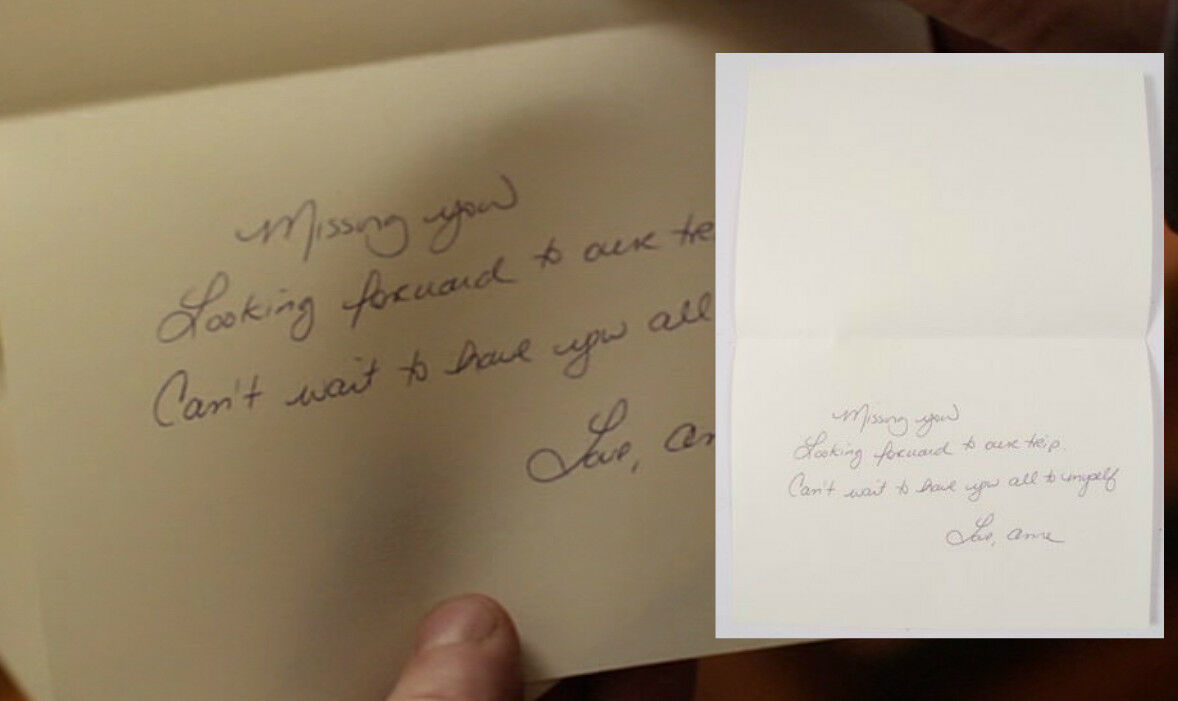 Missing you
Looking forward to our tr
Can't wait to have you all
Love, An
Missing you
Looking forward to our trip.
Can't wait to have you all to myself
Love, Anne